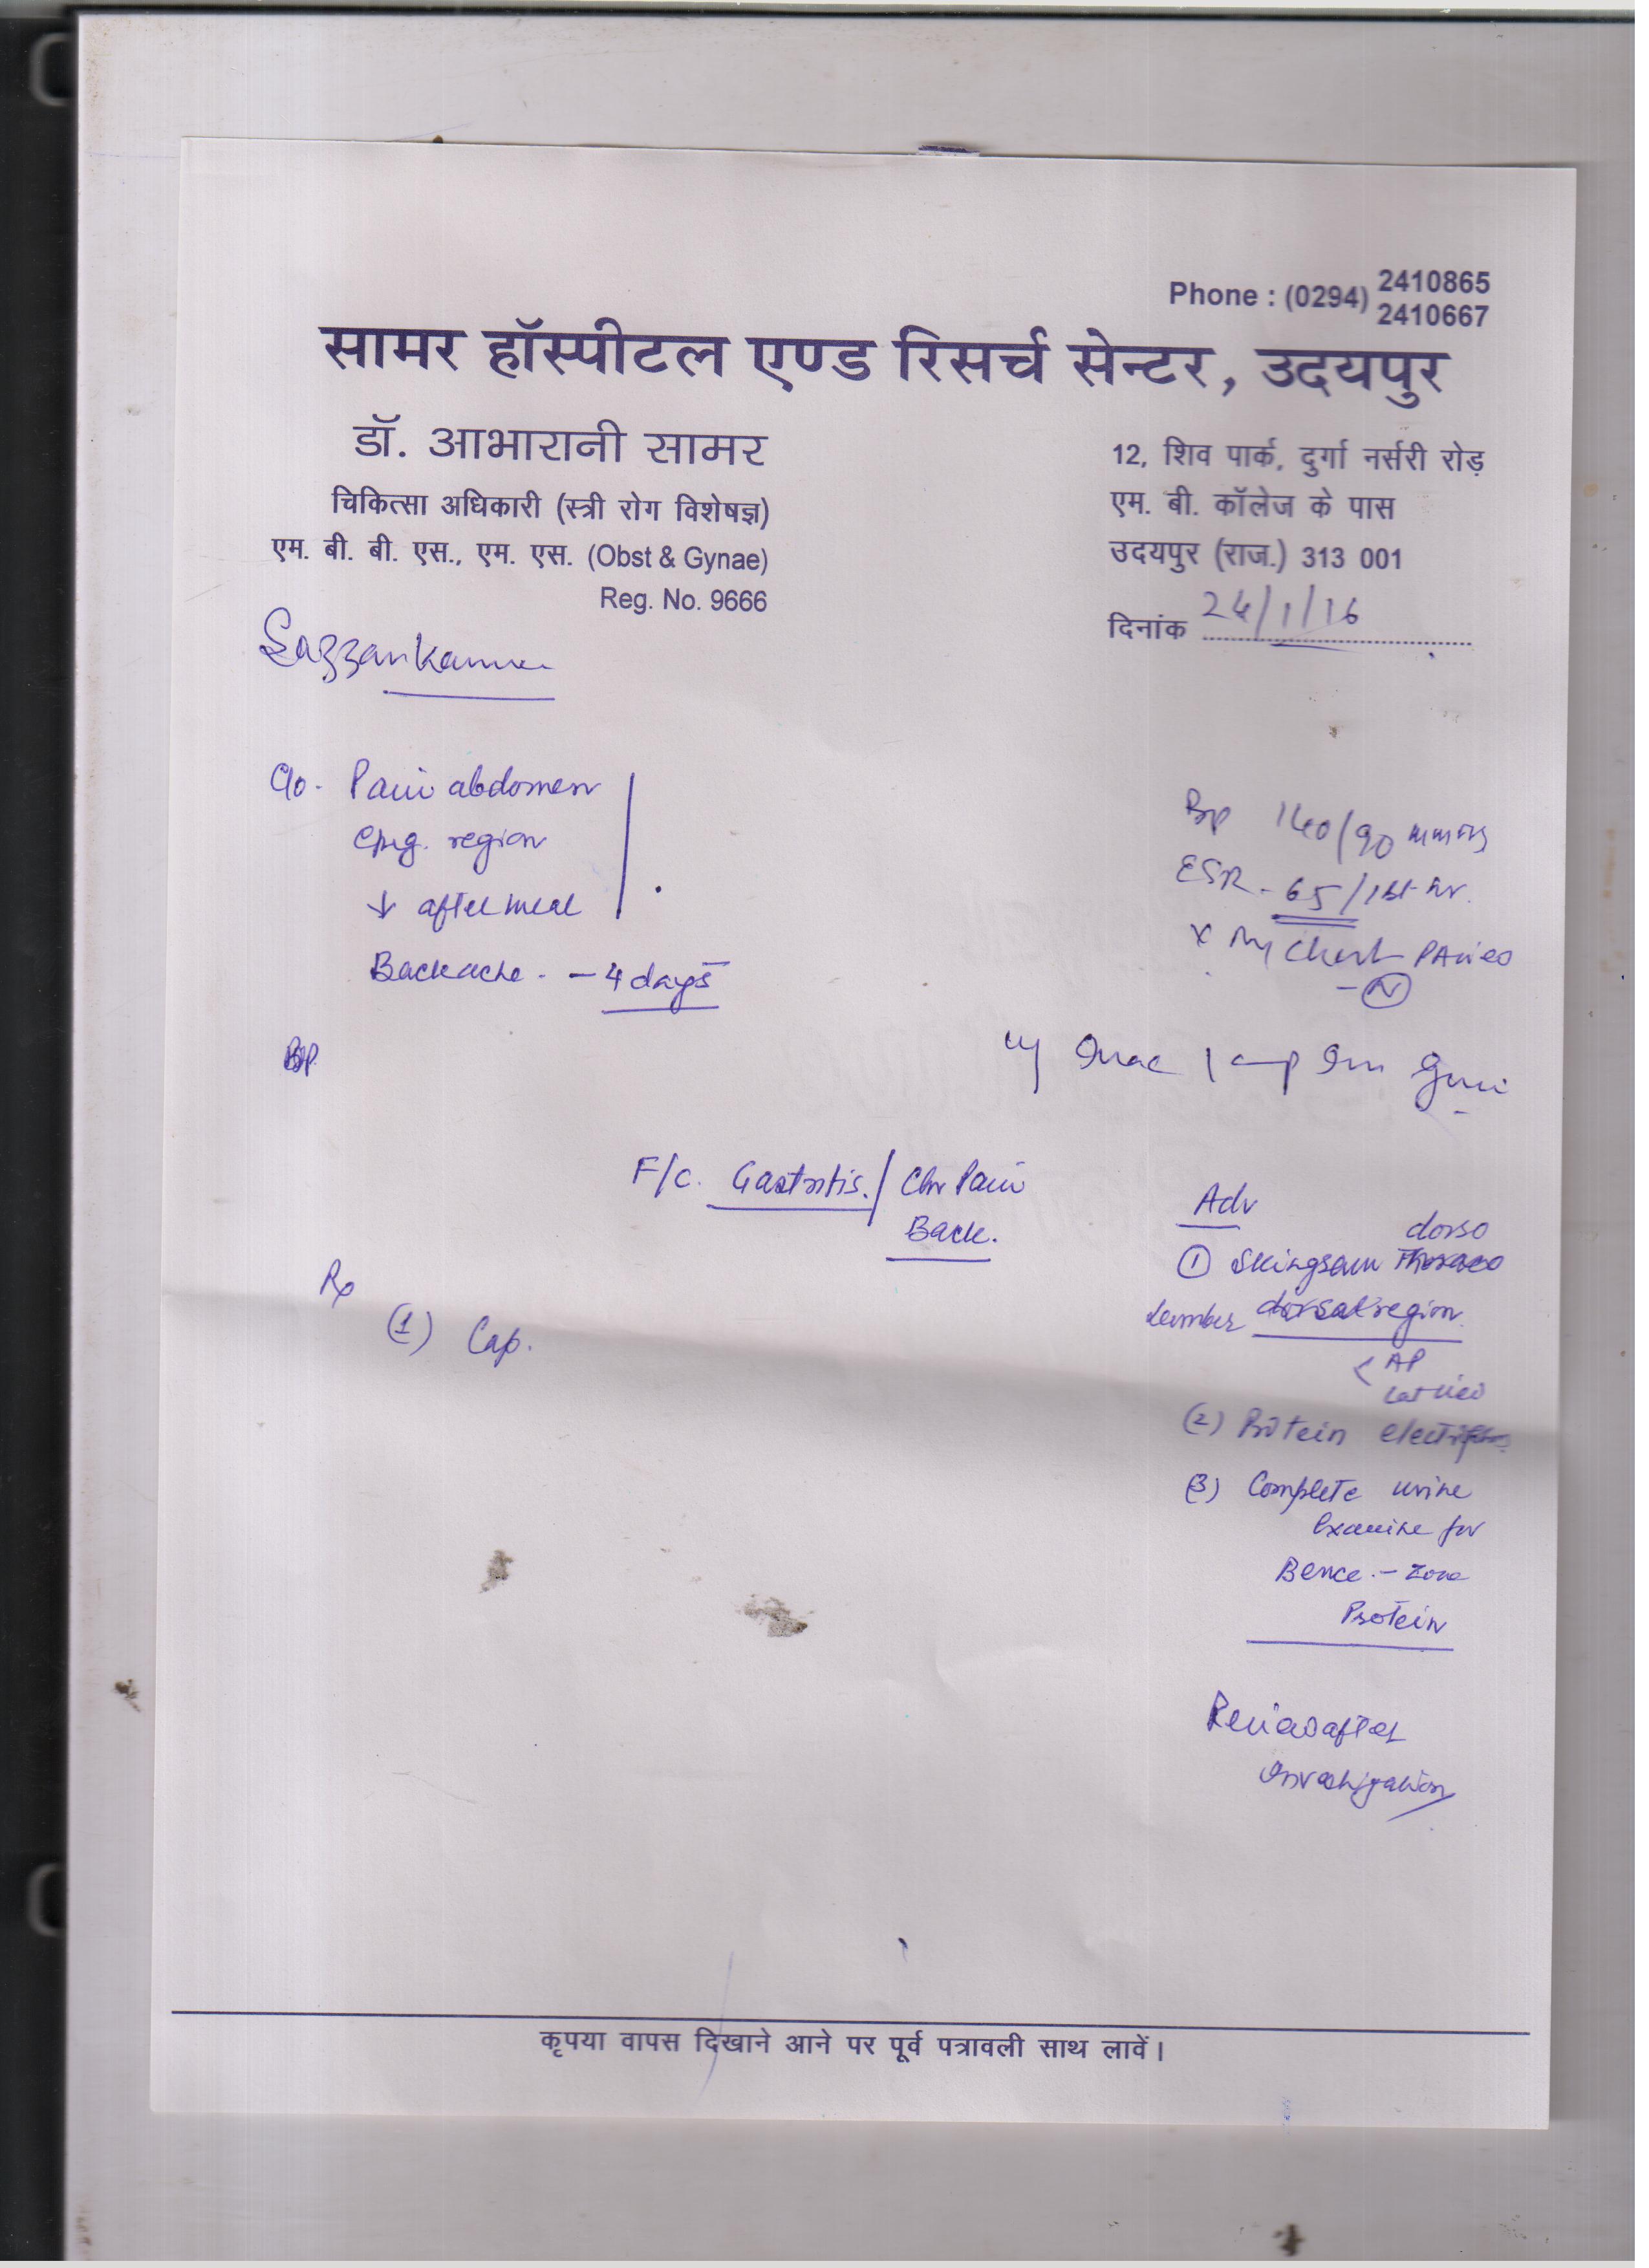 Phone : (0294) 2410865
2410667
सामर हॉस्पीटल एण्ड रिसर्च सेन्टर, उदयपुर
डॉ. आभारानी सामर
चिकित्सा अधिकारी (स्त्री रोग विशेषज्ञ)
एम. बी. बी. एस., एम. एस. (Obst & Gynae)
Reg. No. 9666
12, शिव पार्क, दुर्गा नर्सरी रोड़
एम. बी. कॉलेज के पास
उदयपुर (राज.) 313 001
दिनांक 24/1/16
C/o. Pain abdomen
Epig. region
↓ after meal
Backache. - 4 days
BP 140/90 mmHg
ESR - 65/1st hr.
X Ray Chest PA view
- N
BP
F/C. Gastritis. / Chr Pain
Back.
Rx
(1) Cap.
Adv
dorso
(1) Thoraco
Lumber dorsal region
< AP
Lat view
(2) Protein
(3) Complete urine
Examine for
Bence - Zone
Protein
Review after
Investigation
कृपया वापस दिखाने आने पर पूर्व पत्रावली साथ लावें।